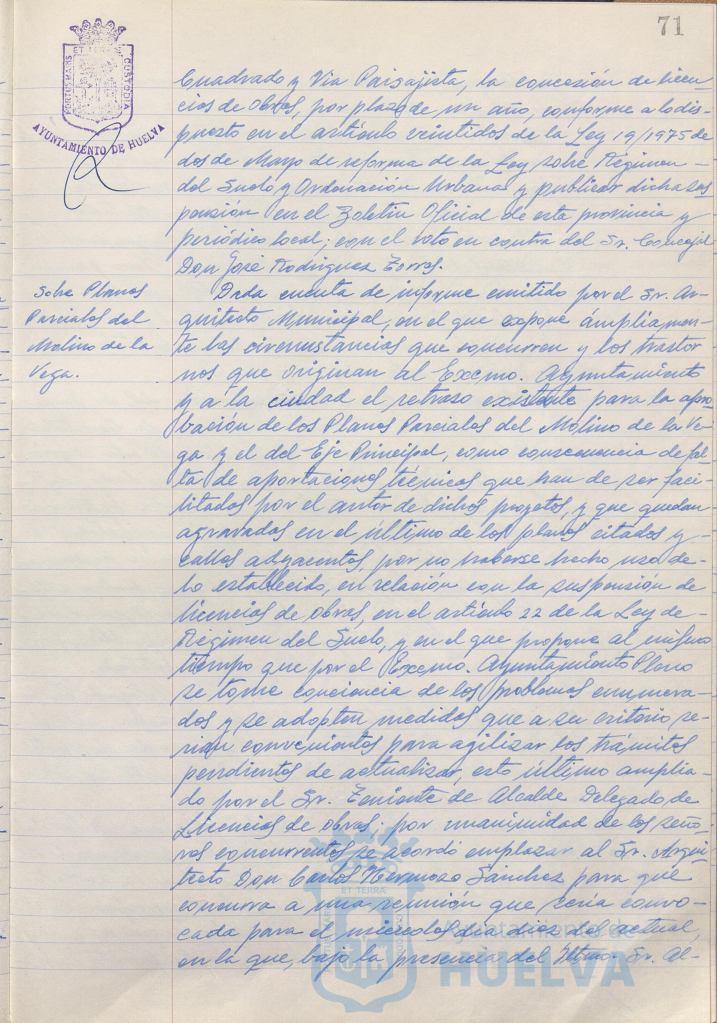 71
PORTUS MARIS ET TERRÆ CUSTODIA
AYUNTAMIENTO DE HUELVA
Cuadrado y Via Paisajista, la concesión de licen-
cias de Obras, por plazo de un año, conforme a lo dis-
puesto en el artículo veintidos de la Ley 19/1975 de
dos de Mayo de reforma de la Ley sobre Régimen
del Suelo y Ordenación Urbana y publicar dicha sus
pensión en el Boletin Oficial de esta provincia y
periódico local; con el voto en contra del Sr. Concejal
Don José Rodriguez Torres.
Sobre Planos
Parciales del
Molino de la
Vega.
Dada cuenta de informe emitido por el Sr. Ar-
quitecto Municipal, en el que expone ámpliamen-
te las circunstancias que concurren y los trastor
nos que originan al Excmo. Ayuntamiento
y a la ciudad el retraso existente para la apro-
bación de los Planos Parciales del Molino de la Ve-
ga y el del Eje Principal, como consecuencia de fal-
ta de aportaciones técnicas que han de ser faci-
litadas por el autor de dichos proyetos, y que quedan
agravados en el último de los planos citados y
calles adyacentes, por no haberse hecho uso de
lo establecido, en relación con la suspensión de
licencias de obras, en el artículo 22 de la Ley de
Régimen del Suelo, y en el que propone al mismo
tiempo que por el Excmo. Ayuntamiento Pleno
se tome conciencia de los problemas enumera-
dos y se adopten medidas que a su criterio se-
rian convenientes para agilizar los trámites
pendientes de actualizar, esto último amplia-
do por el Sr. Teniente de Alcalde Delegado de
Licencias de obras: por unanimidad de los seño-
res concurrentes se acordó emplazar al Sr. Arqui-
tecto Don Carlos Hermoso Sánchez para que
concurra a una reunión que sería convo-
cada para el miercoles dia diez del actual,
en la que, bajo la presencia del Iltmo. Sr. Al-
Ayuntamiento de
HUELVA